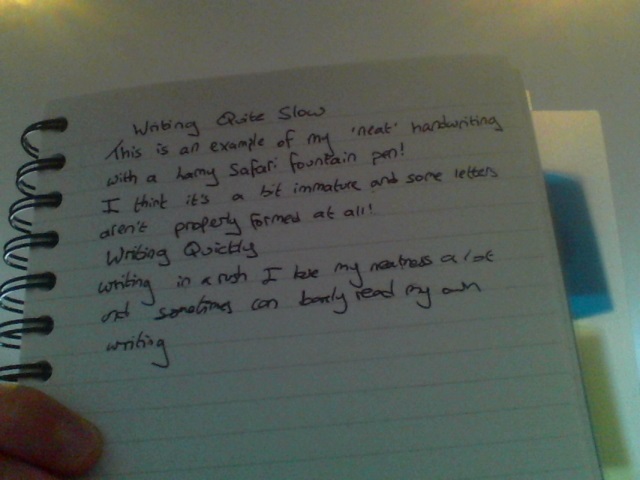 Writing Quite Slow
This is an example of my 'neat' handwriting
with a Lamy Safari fountain pen!
I think it's a bit immature and some letters
aren't properly formed at all!
Writing Quickly
writing in a rush I lose my neatness a lot
and sometimes can barely read my own
writing